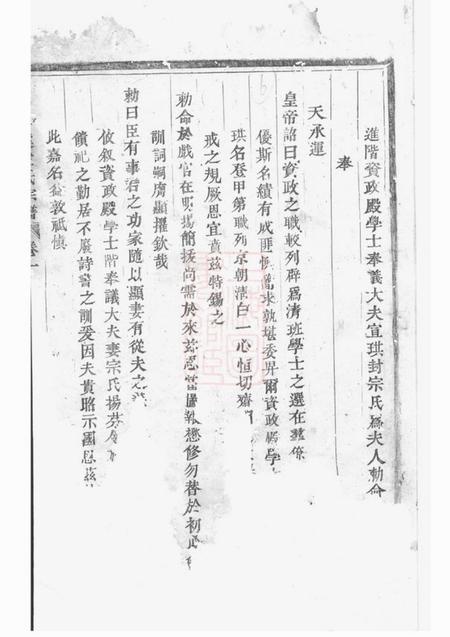 進階資政殿學士奉義大夫宜珙封宗氏爲夫人勅命
奉
天承運
皇帝詔曰資政之職較列辟爲清班學士之選在羣僚
優斯名績有成匪 求孰堪委畀爾資政殿學
珙名登甲第職列京朝清白一心恒切齋
戒之規厥恩宜賁茲特錫之
勅命於戲官在 揚簡拔尚需於來茲忠當 報懋修勿替於初
訓詞嗣膺顯擢欽哉
勅曰臣有事君之功家隨以顯妻有從夫之
攸叙資政殿學士階奉議大夫妻宗氏揚芬
饋祀之勤居不廢詩書之訓爰因夫貴賂示國恩茲
此嘉名益敦祗慎
氏宗譜 卷一